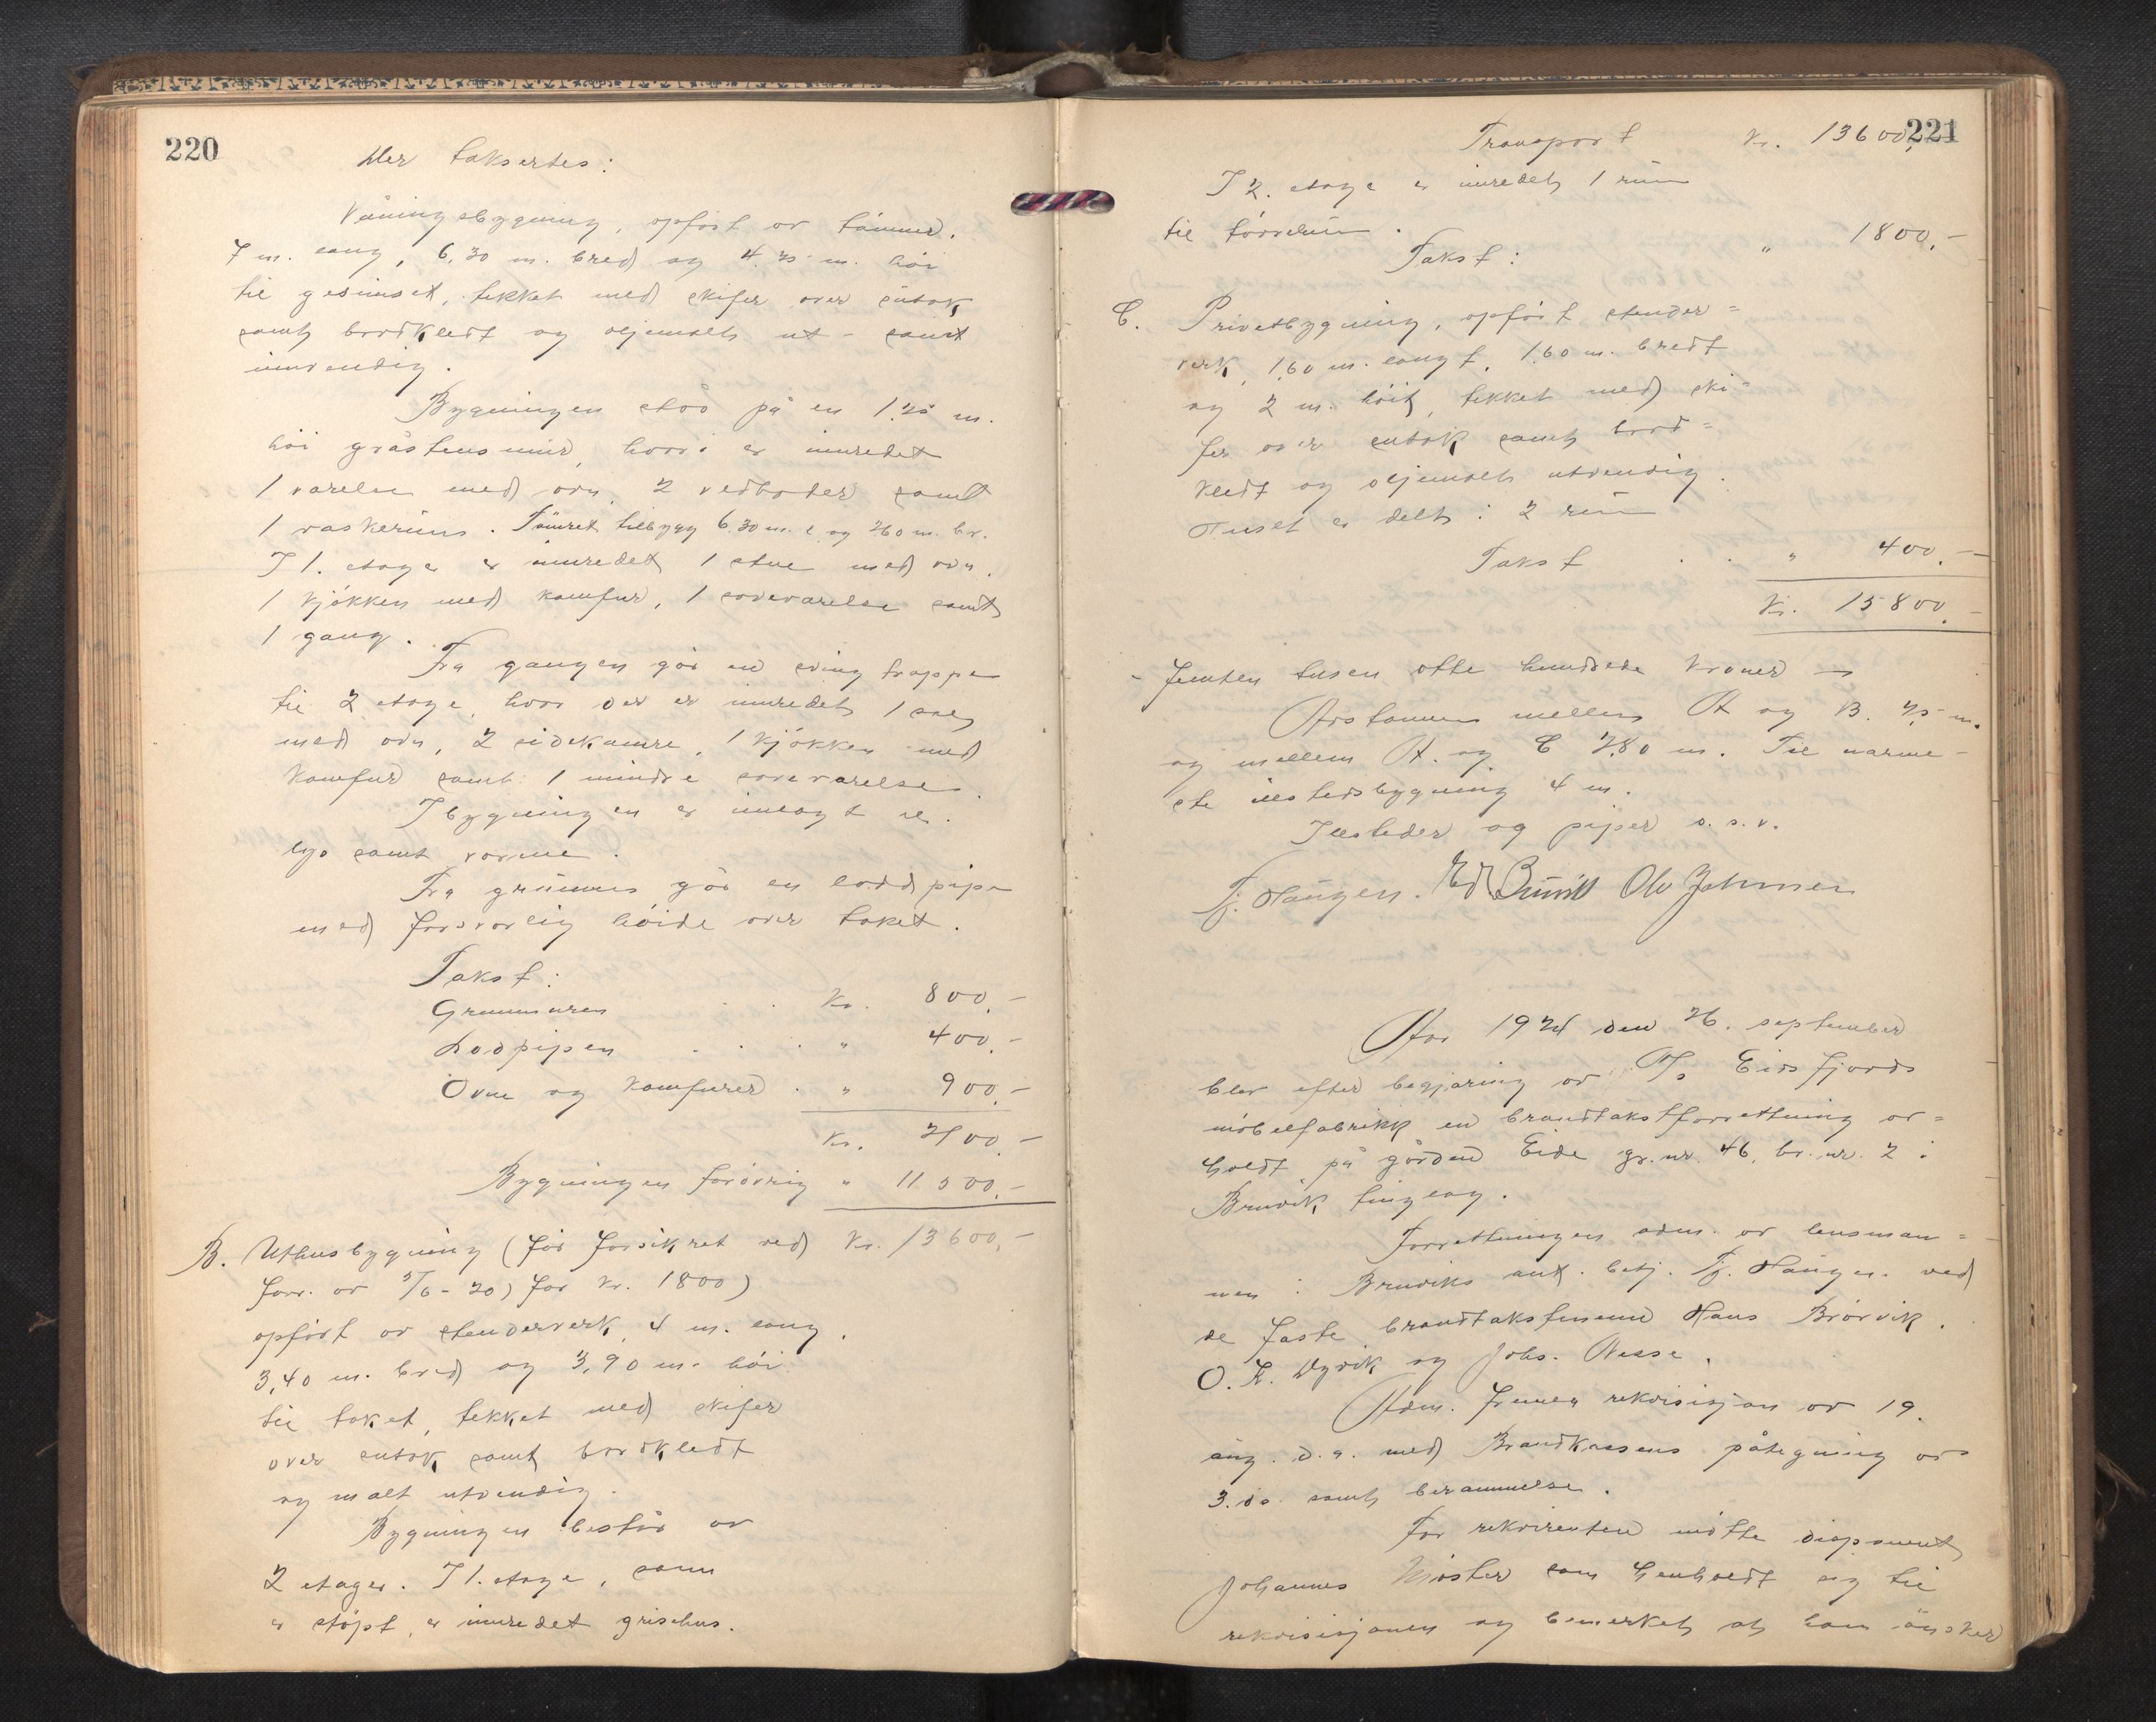 220
Her taksertes:
Våningsbygning, opført av tømmer,
7 m. lang, 6,30 m. bred og 4,75 m. høi
til gesimset, tekket med skifer over sutak
samt bordkledt og oljemalt ut- samt
innvendig.
Bygningen står på en 1,25 m.
høi gråstensmur, hvori er innredet
1 værelse med ovn, 2 vedboder samt
1 vaskerum. Tømret tilbygg 6.30 m. l. og 2.60 m. br.
I 1. etage er innredet 1 stue med ovn,
1 kjøkken med komfur, 1 soveværelse samt
1 gang.
Fra gangen går en sving trappe
til 2 etage, hvor der er innredet 1 sal
med ovn, 2 sidekamre, 1 kjøkken med
komfur samt 1 mindre soveværelse.
I bygningen er innlagt el.
lys samt varme.
Fra grunnen går en loddpipe
med forsvarlig høide over taket.
Takst:
Grunnmuren . . Kr. 800,-
Lodpipen . . . " 400,-
Ovne og komfurer . " 900,-
Kr. 2100,-
Bygningen forøvrig " 11500,-
Kr. 13600,-
B. Uthusbygning (før forsikret ved
forr. av 5/6-20) for Kr. 1800)
opført av stenderverk, 4 m. lang,
3,40 m. bred og 3,90 m. høi
til taket, tekket med skifer
over sutak samt bordkledt
og malt utvendig.
Bygningen består av
2 etager. I 1. etage, som
er støpt, er innredet grisehus.
221
Transport Kr. 13600,-
I 2. etage er innredet 1 rum
til tørrerum.
Takst: " 1800,-
C. Privetbygning, opført stender=
verk, 1,60 m. langt, 1,60 m. bredt
og 2 m. høit, tekket med ski=
fer over sutak samt bord=
kledt og oljemalt utvendig.
Huset er delt i 2 rum
Takst . . " 400,-
Kr. 15800,-
- Femten tusen otte hundrede kroner -
Avstanden mellem A og B. 75 m.
og mellem A. og C 7,80 m. Til nærme-
ste ildstedsbygning 4 m.
Ildsteder og piper o.s.v.
Tj. Haugen. Ol. Johnsen
År 1924 den 26. september
blev efter begjæring av A/s Eidsfjords
møbelfabrikk en brandtakstforretning av=
holdt på gården Eide gr.nr. 46, br.nr. 2 i
Bruvik tinglag.
Forretningen adm. av lensman=
nen i Bruviks aut. betj. Tj. Haugen. ved
de faste brandtakstmenn Hans Brørvik,
O. K. Dyvik og Johs. Nesse.
Adm. fremla rekvisisjon av 19.
aug. d.a. med Brandkassens påtegning av
3. ds. samt berammelse.
For rekvirenten møtte disponent
Johannes Moster som henholdt sig til
rekvisisjonen og bemerket at han ønsker